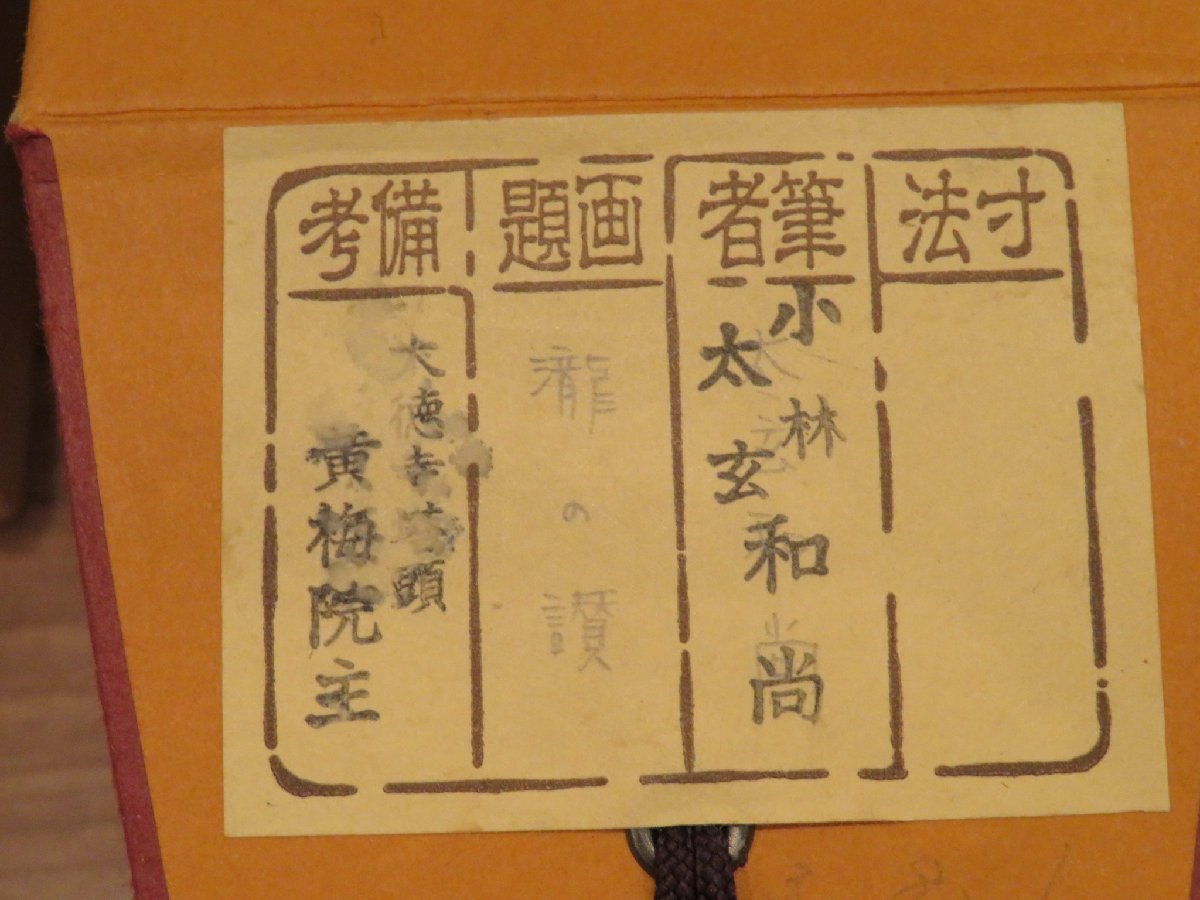 寸法
筆者
小林
太玄
和尚
画題
瀧の讃
備考
大徳寺塔頭
黄梅院主